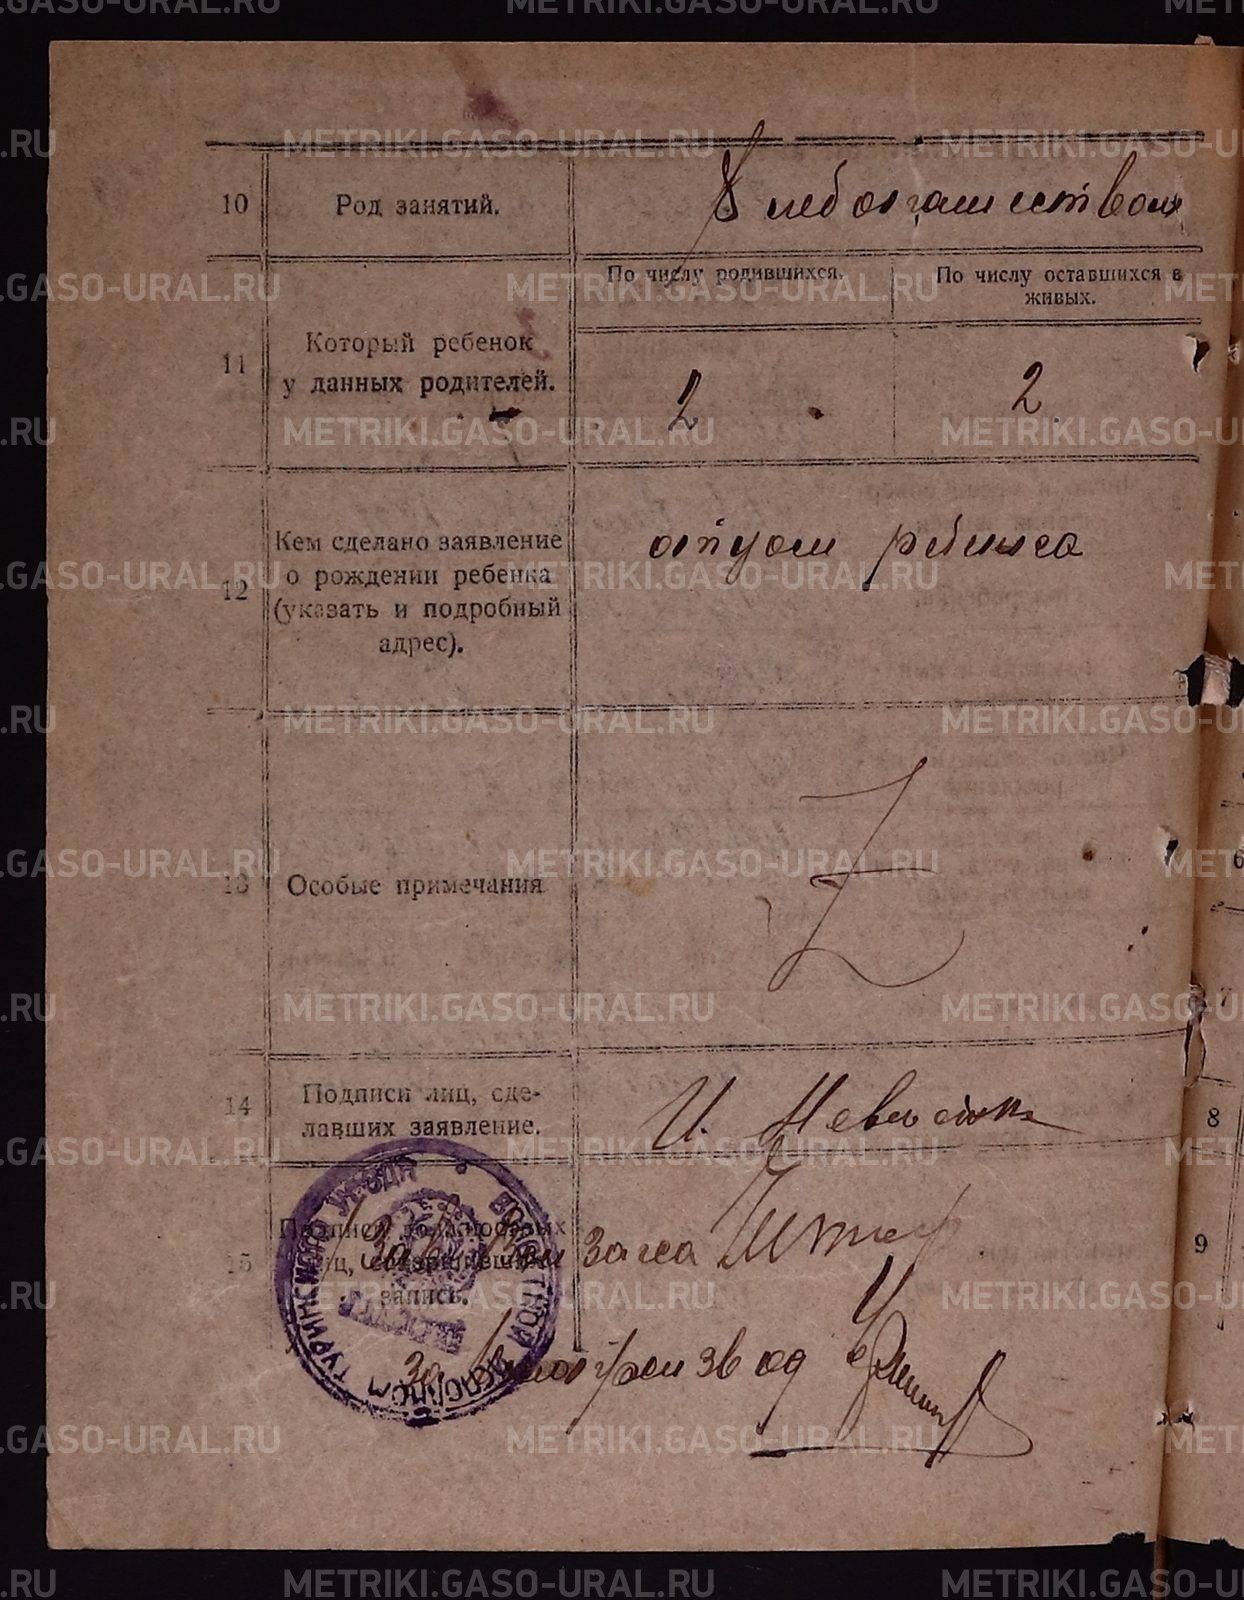 10 Род занятий. Хлебопашеством
По числу родившихся. По числу оставшихся в живых.
11 Который ребенок
у данных родителей. 2 2
12 Кем сделано заявление
о рождении ребенка
(указать и подробный
адрес). отцом ребенка
13 Особые примечания Z
14 Подписи лиц, сде-
лавших заявление. И.
15 Подписи должностных
лиц, совершивших
запись.
Зав. загса
за делопроизвод
ТУРИНСКОГО УЕЗДА
METRIKI.GASO-URAL.RU
6
7
8
9